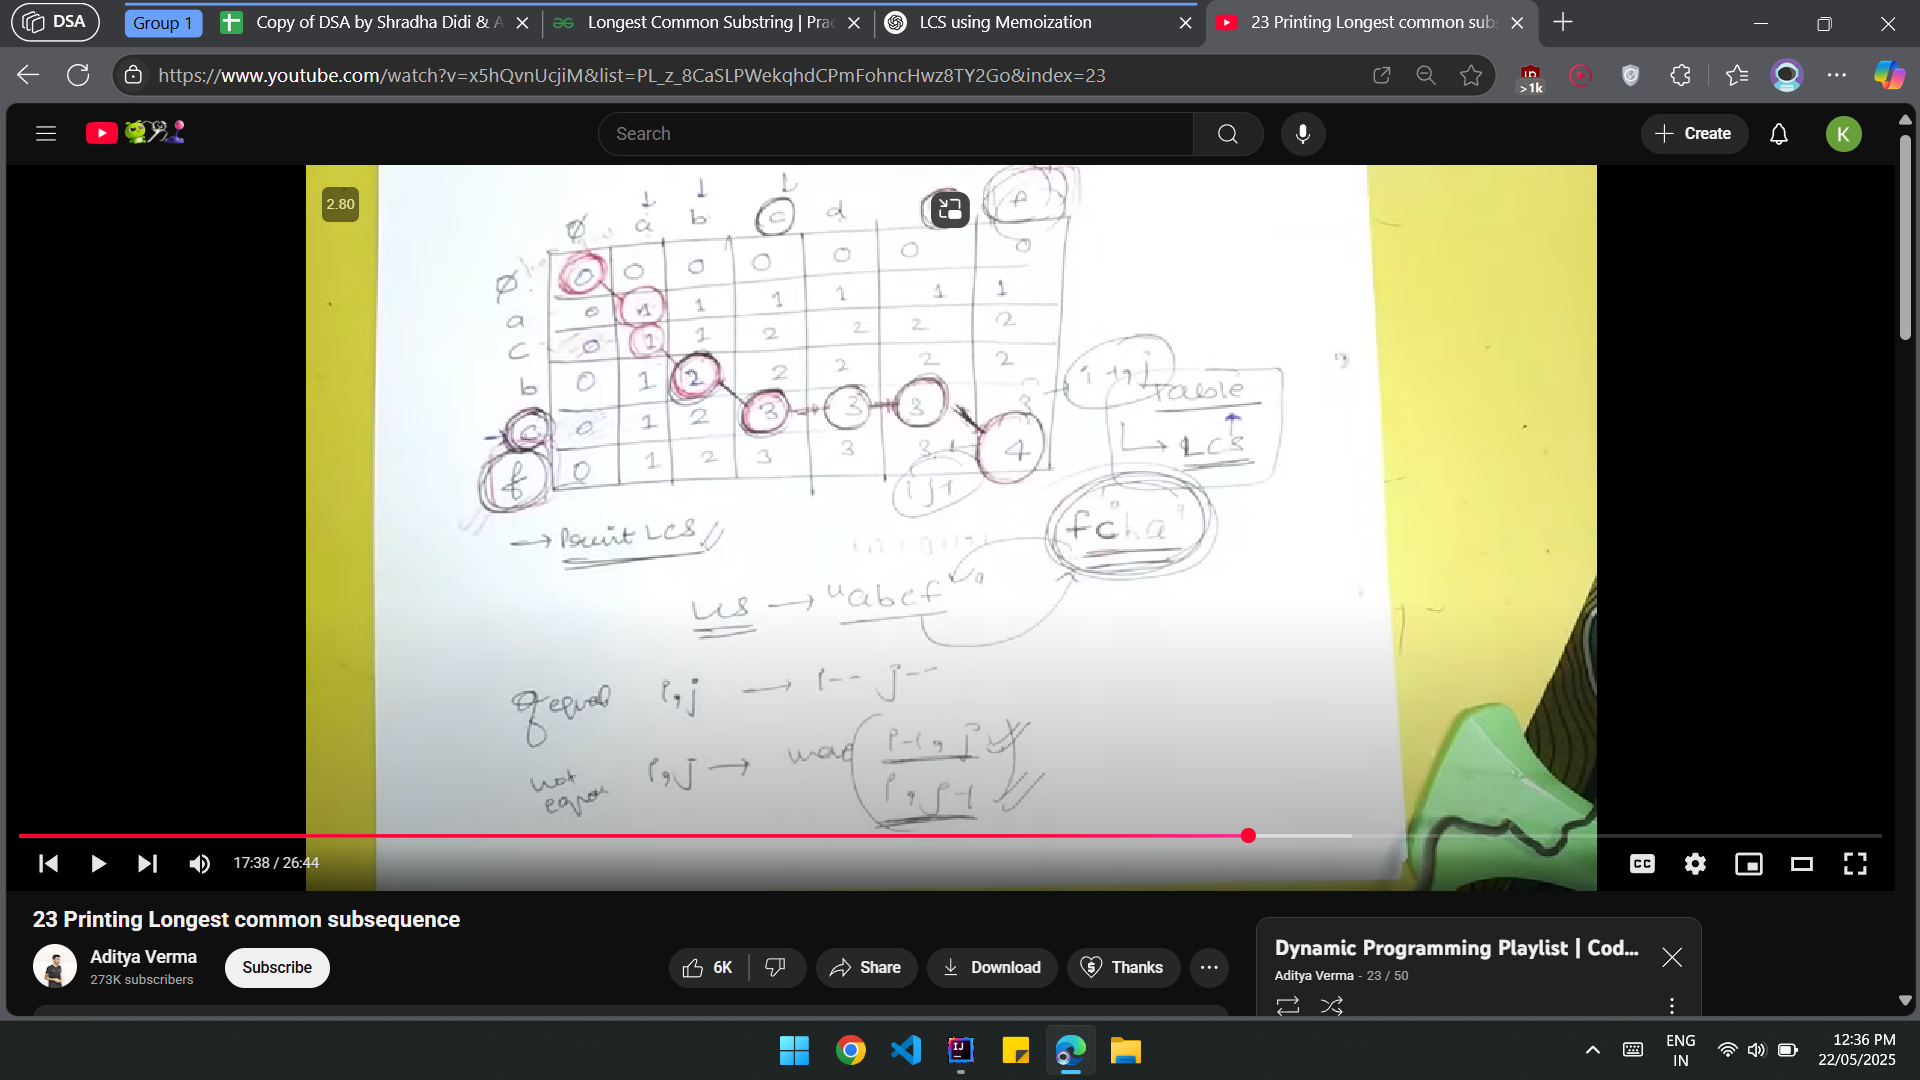 DSA
Group 1
Copy of DSA by Shradha Didi & A
Longest Common Substring | Prac
LCS using Memoization
23 Printing Longest common subs
https://www.youtube.com/watch?v=x5hQvnUcjiM&list=PL_z_8CaSLPWekqhdCPmFohncHwz8TY2Go&index=23
>1k
Search
Create
K
2.80
Ø a b c d f
Ø 0 0 0 0 0 0 0
a 0 1 1 1 1 1 1
c 0 1 1 2 2 2 2
b 0 1 2 2 2 2 2
c 0 1 2 3 3 3 3
f 0 1 2 3 3 3 4
Table
↳ LCS
→ Print LCS
"fcba"
LCS → "abcf"
equal i,j → i-- j--
not equal i,j → max
i-1, j
i, j-1
17:38 / 26:44
CC
23 Printing Longest common subsequence
Aditya Verma
273K subscribers
Subscribe
6K
Share
Download
Thanks
Dynamic Programming Playlist | Cod...
Aditya Verma - 23 / 50
ENG
IN
12:36 PM
22/05/2025